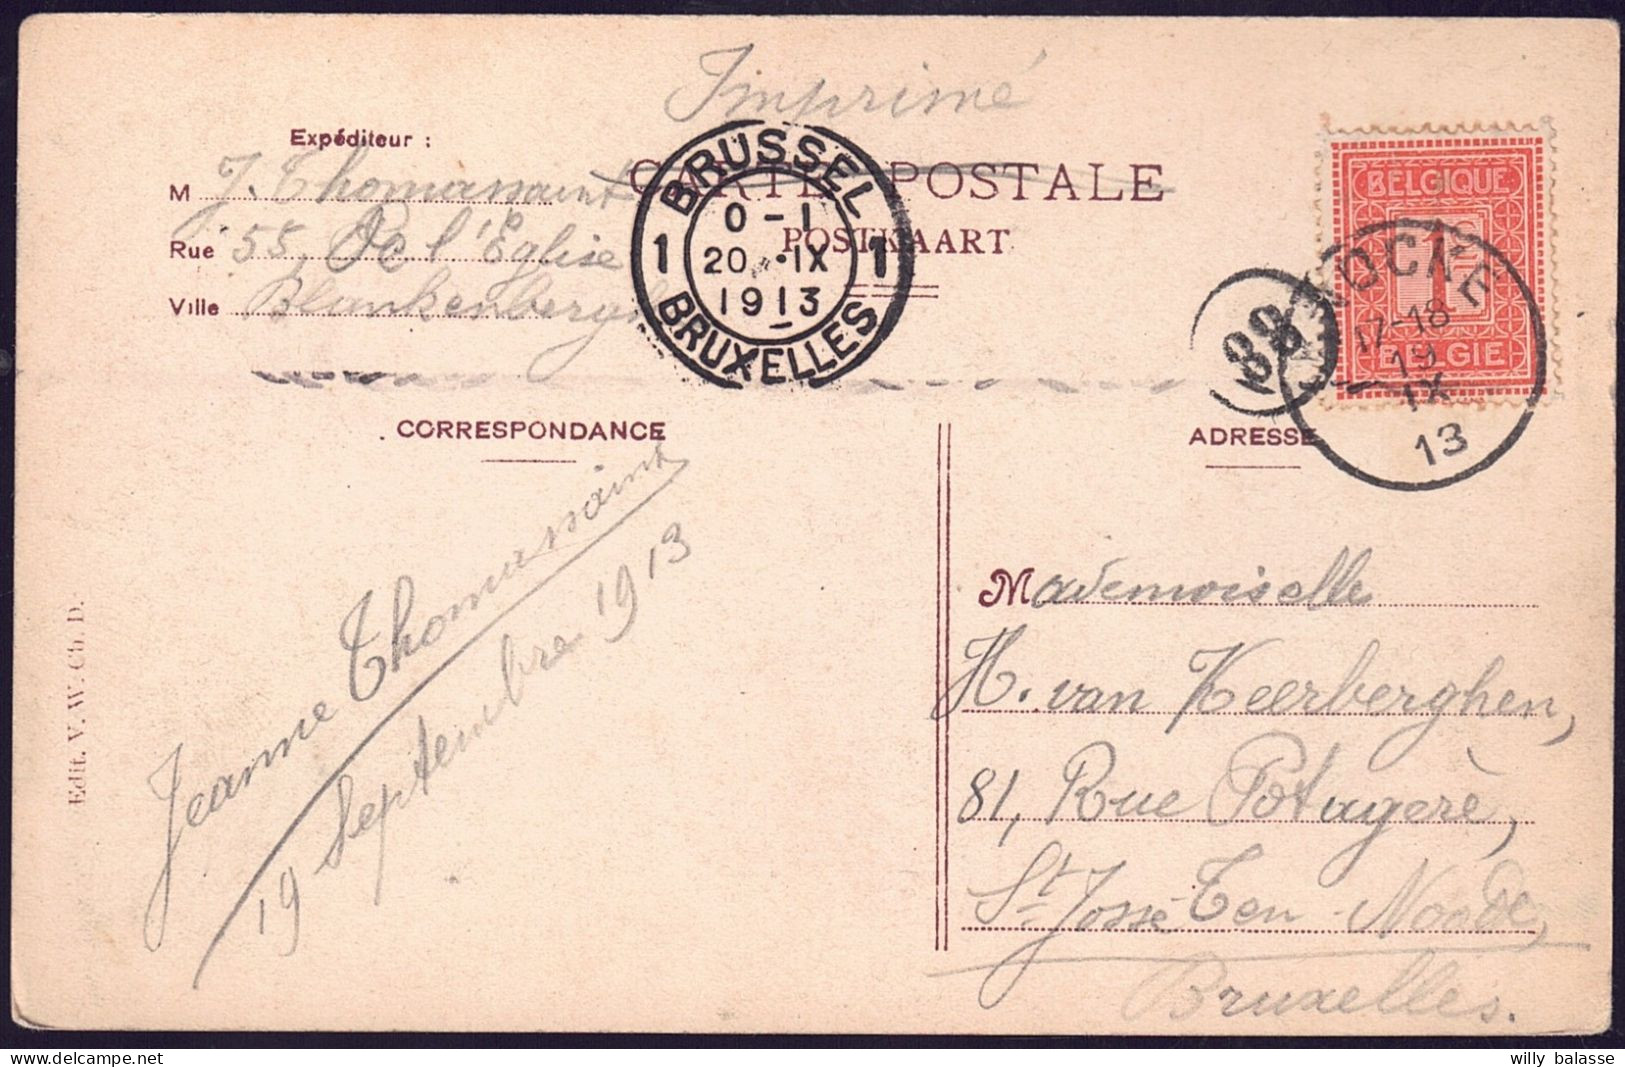 Imprimé
Expéditeur :
M J. Thomassaint
CARTE POSTALE
Rue 55, De l'Église
POSTKAART
Ville Blankenbergh
BRUSSEL
1 0-1 1
20 IX
1913
BRUXELLES
BELGIQUE
1
BELGIË
KNOCKE
17-18
19
IX
13
CORRESPONDANCE
ADRESSE
Jeanne Thomassaint
19 Septembre 1913
Mademoiselle
H. van Keerberghen,
81, Rue Potagère,
St Josse-Ten-Noode,
Bruxelles.
Edit. V. W. Ch. D.
willy balasse